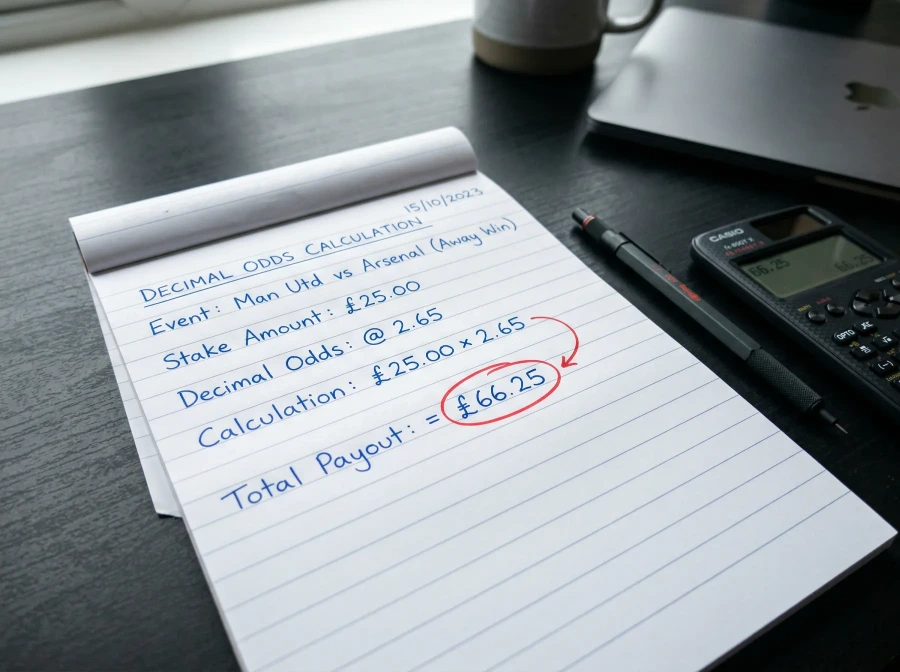 15/10/2023
DECIMAL ODDS CALCULATION
Event: Man Utd vs Arsenal (Away Win)
Stake Amount: £25.00
Decimal Odds: @ 2.65
Calculation: £25.00 × 2.65
Total Payout: = £66.25
CASIO
66.25 66.25
OPTN